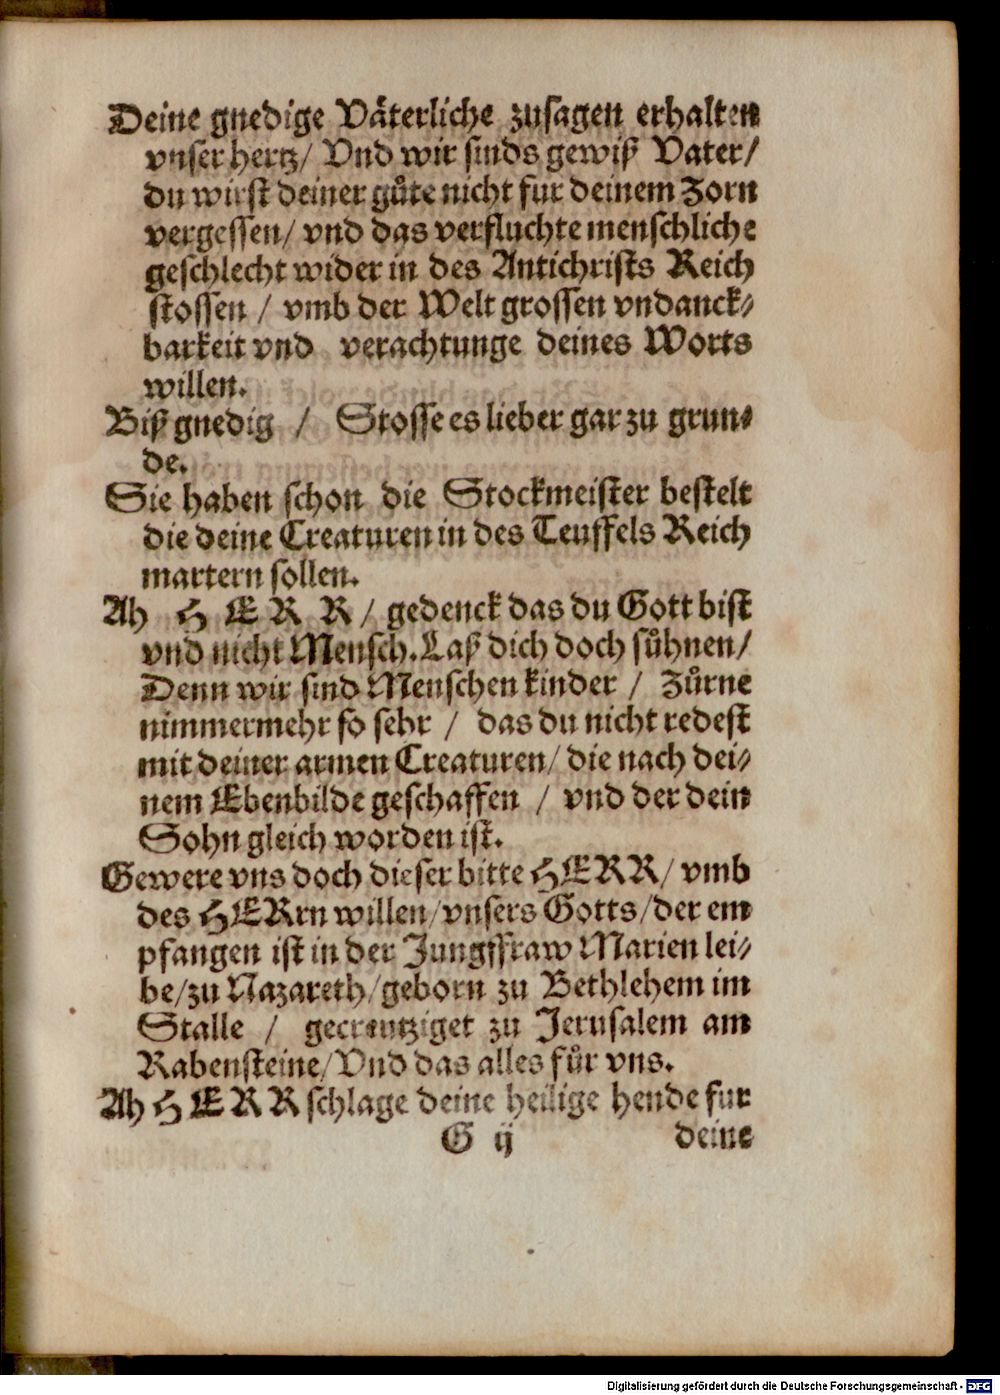 Deine gnedige Väterliche zusagen erhalten
vnser hertz/ Vnd wir sinds gewiß Vater/
du wirst deiner gůte nicht fur deinem Zorn
vergessen/ vnd das verfluchte menschliche
geschlecht wider in des Antichrists Reich
stossen / vmb der Welt grossen vndanck⸗
barkeit vnd verachtunge deines Worts
willen.
Biß gnedig / Stosse es lieber gar zu grun⸗
de.
Sie haben schon die Stockmeister bestelt
die deine Creaturen in des Teuffels Reich
martern sollen.
Ah HERR/ gedenck das du Gott bist
vnd nicht Mensch. Laß dich doch sůhnen/
Denn wir sind Menschen kinder / Zůrne
nimmermehr so sehr / das du nicht redest
mit deiner armen Creaturen/ die nach dei⸗
nem Ebenbilde geschaffen / vnd der dein
Sohn gleich worden ist.
Gewere vns doch dieser bitte HERR/ vmb
des HERrn willen/ vnsers Gotts/ der em
pfangen ist in der Jungffraw Marien lei⸗
be/ zu Nazareth/ geborn zu Bethlehem im
Stalle / gecreutziget zu Jerusalem am
Rabensteine/ Vnd das alles fůr vns.
Ah HERR schlage deine heilige hende fur
G ij deine
Digitalisierung gefördert durch die Deutsche Forschungsgemeinschaft - DFG